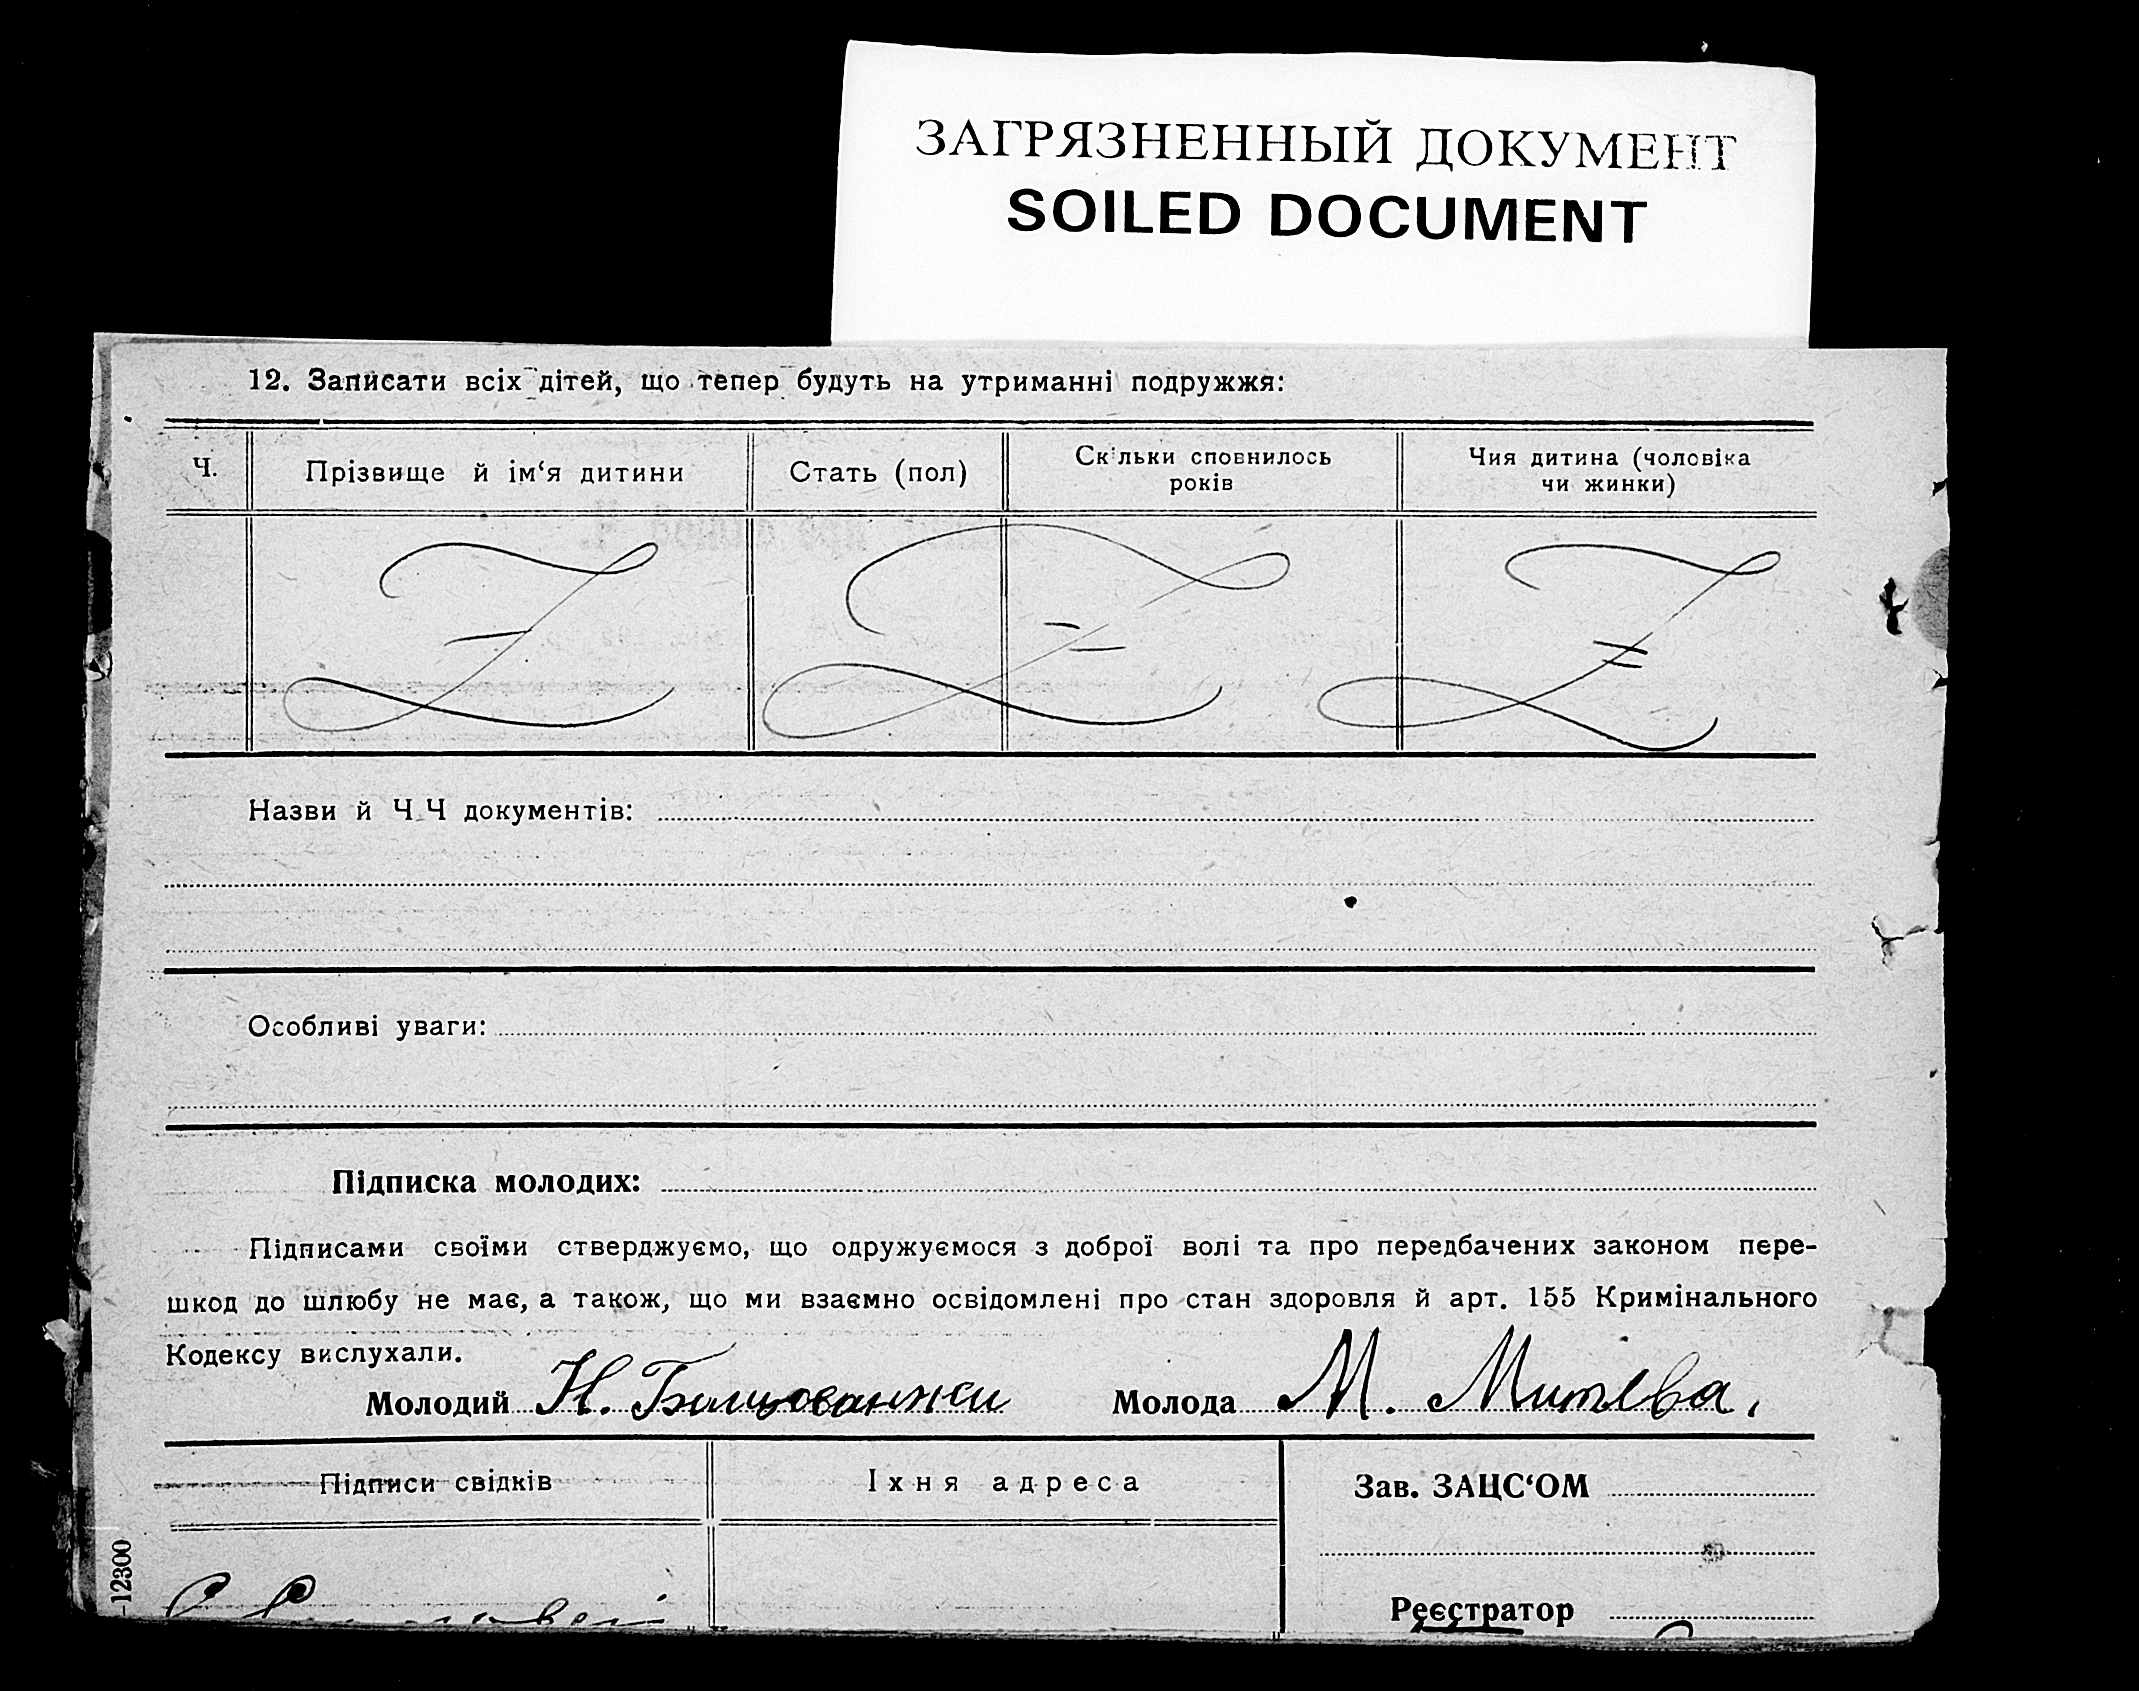 ЗАГРЯЗНЕННЫЙ ДОКУМЕНТ
SOILED DOCUMENT
12. Записати всіх дітей, що тепер будуть на утриманні подружжя:
Ч.
Прізвище й ім‘я дитини
Стать (пол)
Скільки сповнилось
років
Чия дитина (чоловіка
чи жинки)
Назви й Ч.Ч документів:
Особливі уваги:
Підписка молодих:
Підписами своїми стверджуємо, що одружуємося з доброї волі та про передбачених законом пере-
шкод до шлюбу не має, а також, що ми взаємно освідомлені про стан здоровля й арт. 155 Кримінального
Кодексу вислухали.
Молодий Н. Молода М. Митева.
Підписи свідків
Іхня адреса
Зав. ЗАЦС‘ОМ
Реєстратор
12300